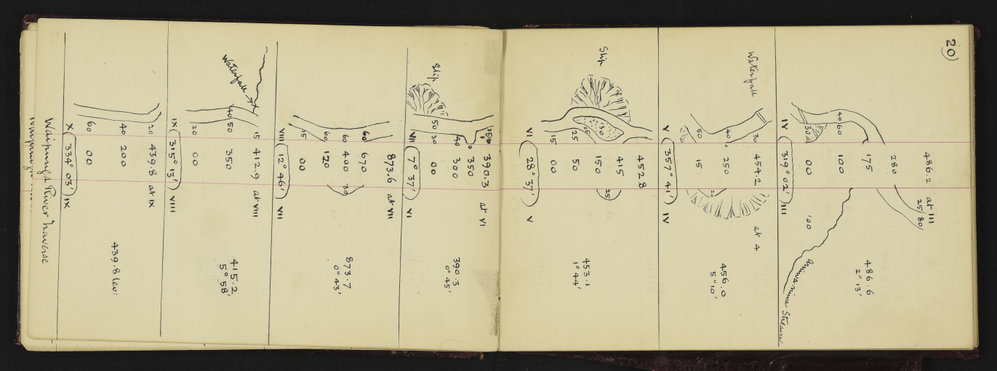 20)
486.2 at III
25 80
280
175
40 60
100
30
00
100
IV (319° 02') III
486.6
2° 13'
Stream
Waterfall
454.2 at 4
30
40
250
50
15
V (357° 41') IV
456.0
5° 10'
Slip
452.8
415
150
25
50
15
00
VI (28° 57') V
453.1
1° 44'
Slip
390.3 at VI
150
350
40
300
50
20
00
VII (7° 37') VI
390.3
0° 45'
873.6 at VII
60 670
60 400 30
60 120
15 00
VIII (12° 46') VII
873.7
0° 43'
Waterfall
15 412.9 at VIII
40
50 350
20 00
IX (315° 13') VIII
415.2
5° 58'
20 439.8 at IX
40 200
60 00
X (334° 03') IX
439.8 lev:
River Traverse